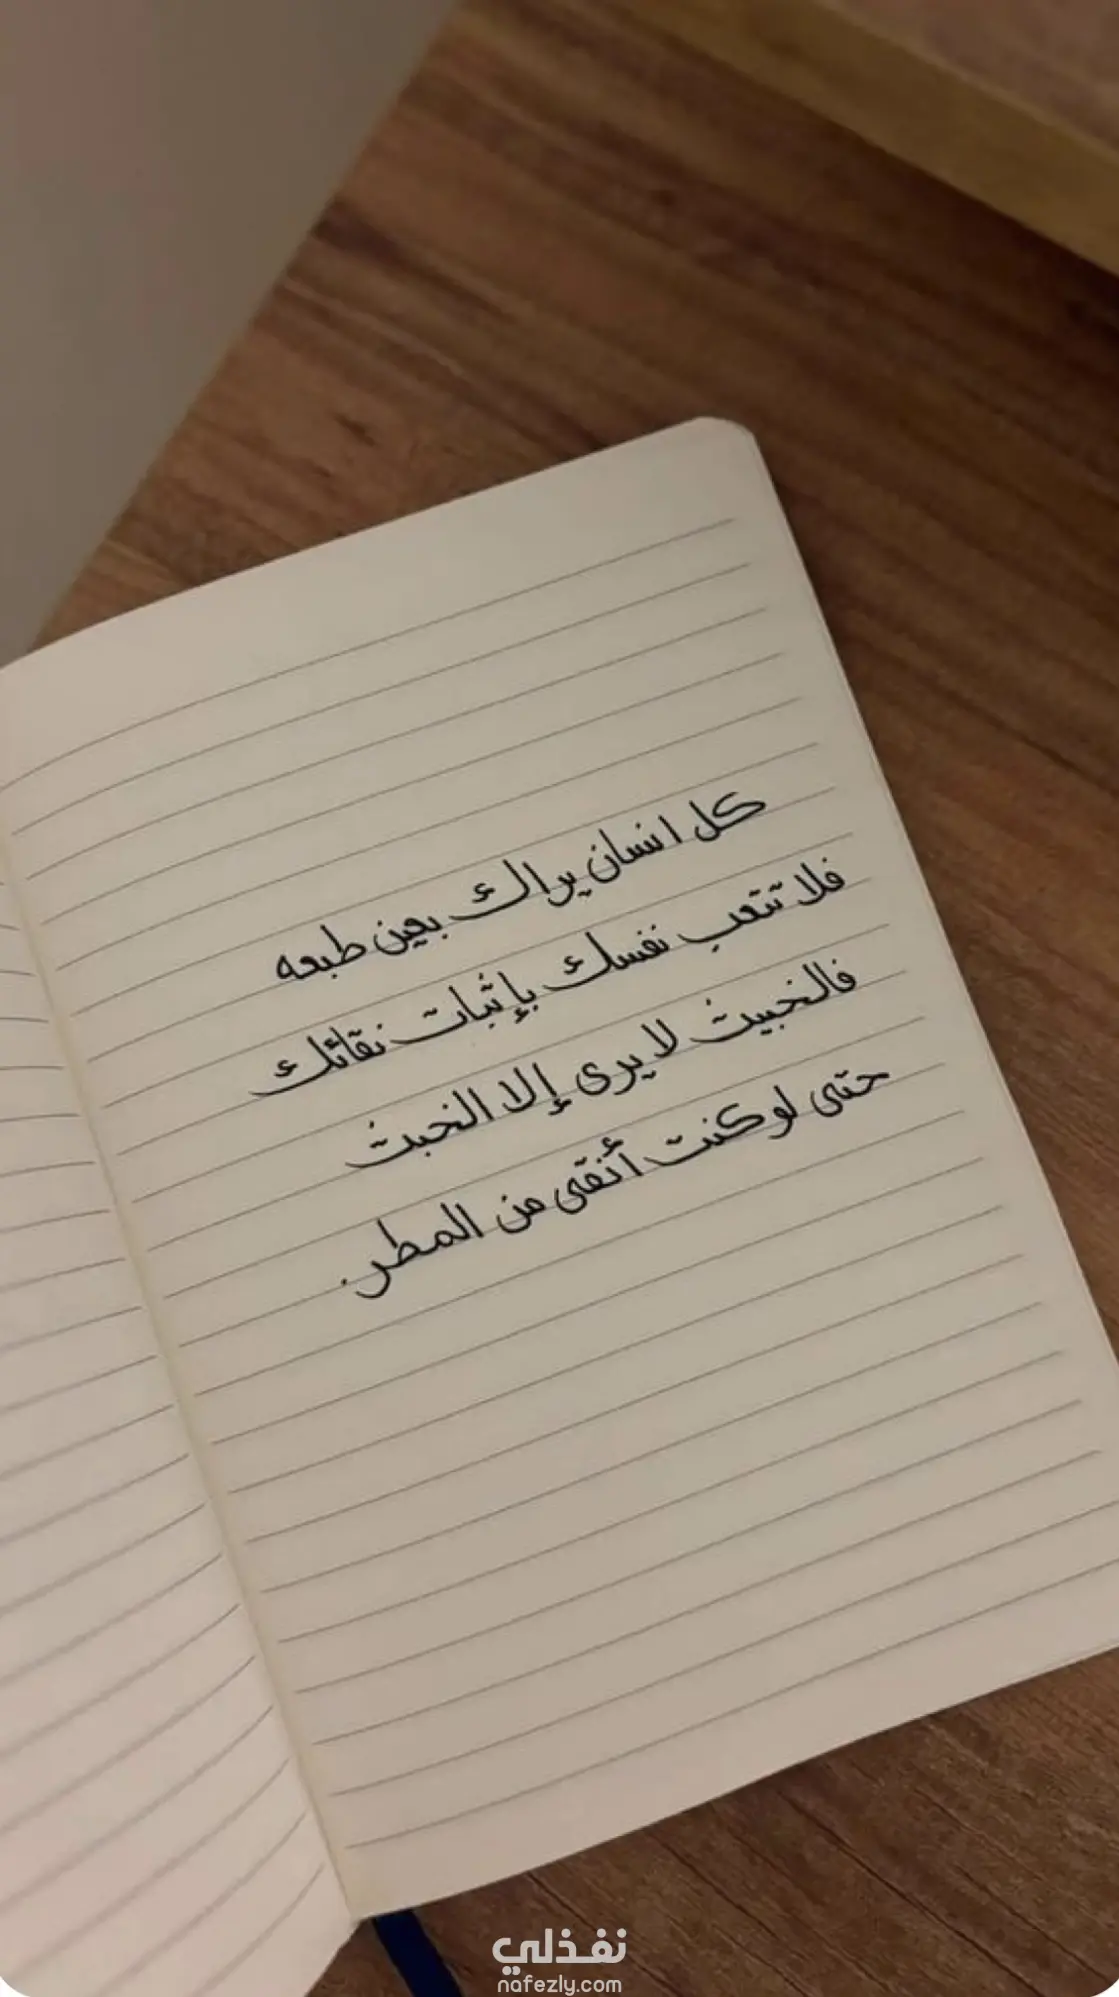 كل انسان يراك بعين طبعه
فلا تتعب نفسك بإثبات نقائك
فالخبيث لا يرى إلا الخبث
حتى لو كنت أنقى من المطر.
نفذلي
nafezly.com